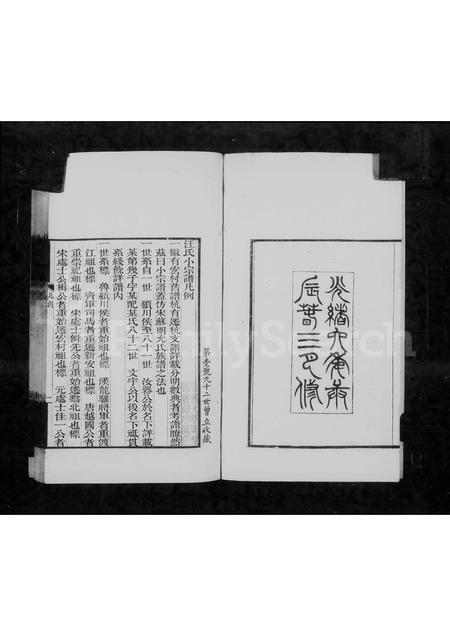 光緒六年庚
辰葺三月修
第壹號九十二世曾立收藏
汪氏小宗譜凡例
一徽有宏村舊譜杭有遷杭支譜詳載分明數典者考譜瞭然
茲曰小宗譜蓋仿宋蘇明允氏族譜之法也
一世系自一世 潁川侯至八十一世 汝器公於名下詳載
某第幾子字某配某氏八十二世 文宇公以後名下祗貫
系綫餘詳譜內
一世系標 魯潁川侯者重始祖也標 漢龍驤將軍者重渡
江祖也標 齊軍司馬者重遷新安祖也標 唐越國公者
重崇祀祖也標 宋處士 先公者重始遷黟北祖也標
宋處士 公者重始遷宏村祖也標 元處士仕一公者
凡例
FamilySearch